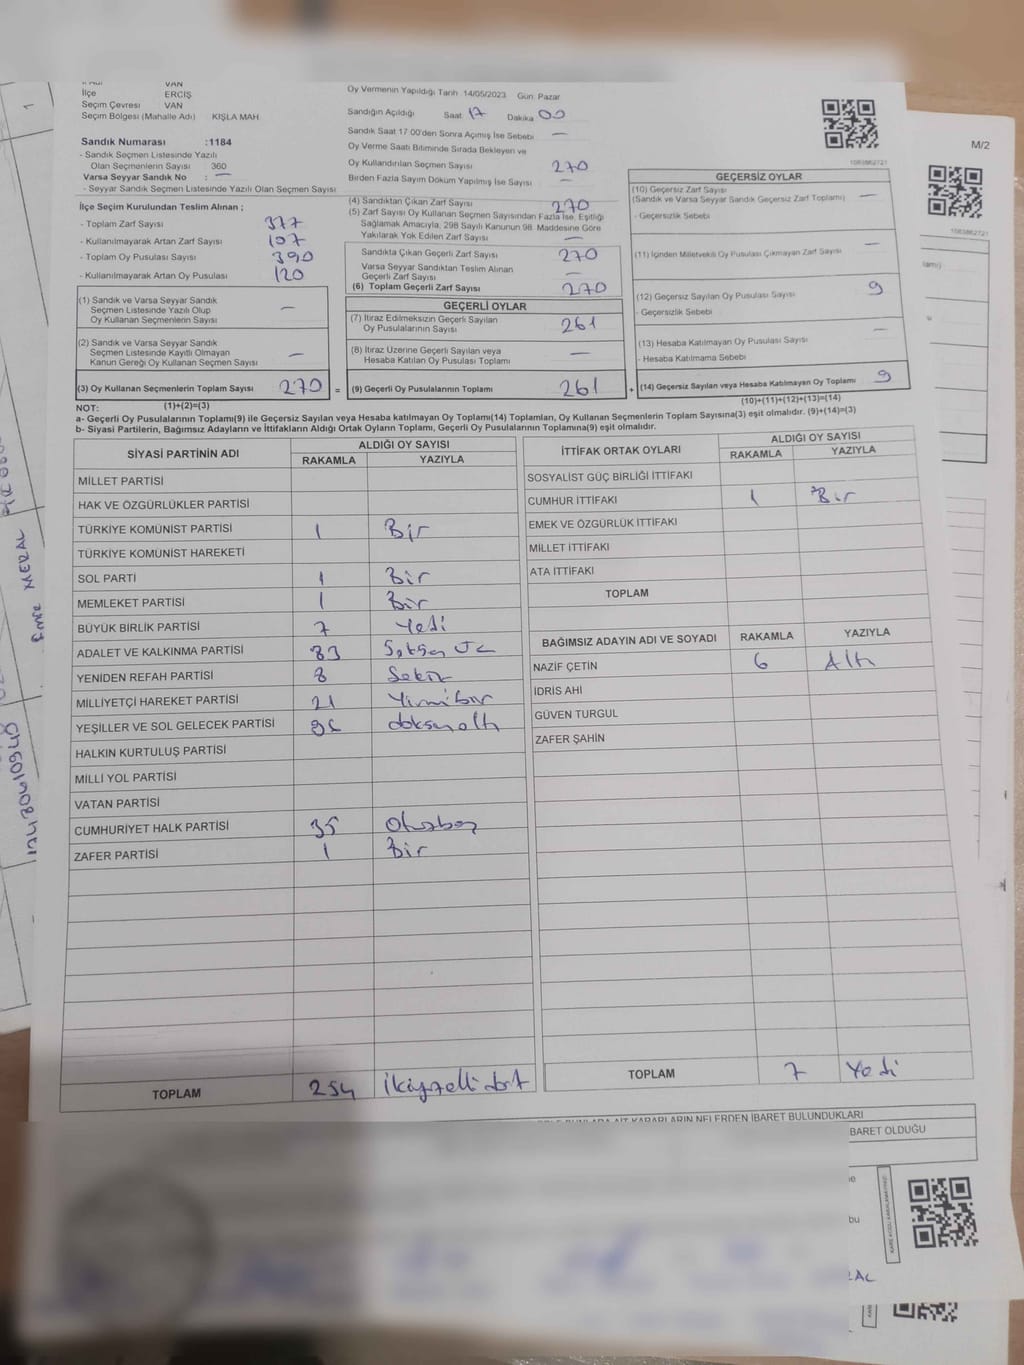 VAN
İlçe ERCİŞ
Seçim Çevresi VAN
Seçim Bölgesi (Mahalle Adı) KIŞLA MAH.
Sandık Numarası :1184
- Sandık Seçmen Listesinde Yazılı
Olan Seçmenlerin Sayısı 360
Varsa Seyyar Sandık No : —
- Seyyar Sandık Seçmen Listesinde Yazılı Olan Seçmen Sayısı
İlçe Seçim Kurulundan Teslim Alınan ;
- Toplam Zarf Sayısı 377
- Kullanılmayarak Artan Zarf Sayısı 107
- Toplam Oy Pusulası Sayısı 390
- Kullanılmayarak Artan Oy Pusulası 120
(1) Sandık ve Varsa Seyyar Sandık
Seçmen Listesinde Yazılı Olup
Oy Kullanan Seçmenlerin Sayısı —
(2) Sandık ve Varsa Seyyar Sandık
Seçmen Listesinde Kayıtlı Olmayan
Kanun Gereği Oy Kullanan Seçmen Sayısı —
(3) Oy Kullanan Seçmenlerin Toplam Sayısı 270 =
(1)+(2)=(3)
Oy Vermenin Yapıldığı Tarih 14/05/2023 Gün: Pazar
Sandığın Açıldığı Saat 17 Dakika 00
Sandık Saat 17:00'den Sonra Açılmış İse Sebebi —
Oy Verme Saati Bitiminde Sırada Bekleyen ve
Oy Kullandırılan Seçmen Sayısı 270
Birden Fazla Sayım Döküm Yapılmış İse Sayısı —
(4) Sandıktan Çıkan Zarf Sayısı 270
(5) Zarf Sayısı Oy Kullanan Seçmen Sayısından Fazla İse, Eşitliği
Sağlamak Amacıyla, 298 Sayılı Kanunun 98. Maddesine Göre
Yakılarak Yok Edilen Zarf Sayısı —
Sandıkta Çıkan Geçerli Zarf Sayısı 270
Varsa Seyyar Sandıktan Teslim Alınan
Geçerli Zarf Sayısı —
(6) Toplam Geçerli Zarf Sayısı 270
GEÇERLİ OYLAR
(7) İtiraz Edilmeksizin Geçerli Sayılan
Oy Pusulalarının Sayısı 261
(8) İtiraz Üzerine Geçerli Sayılan veya
Hesaba Katılan Oy Pusulası Toplamı —
(9) Geçerli Oy Pusulalarının Toplamı 261 +
1083862721
GEÇERSİZ OYLAR
(10) Geçersiz Zarf Sayısı
(Sandık ve Varsa Seyyar Sandık Geçersiz Zarf Toplamı) —
- Geçersizlik Sebebi
(11) İçinden Milletvekili Oy Pusulası Çıkmayan Zarf Sayısı —
(12) Geçersiz Sayılan Oy Pusulası Sayısı 9
- Geçersizlik Sebebi
(13) Hesaba Katılmayan Oy Pusulası Sayısı —
- Hesaba Katılmama Sebebi
(14) Geçersiz Sayılan veya Hesaba Katılmayan Oy Toplamı 9
(10)+(11)+(12)+(13)=(14)
M/2
1083862721
NOT:
a- Geçerli Oy Pusulalarının Toplamı(9) ile Geçersiz Sayılan veya Hesaba katılmayan Oy Toplamı(14) Toplamları, Oy Kullanan Seçmenlerin Toplam Sayısına(3) eşit olmalıdır. (9)+(14)=(3)
b- Siyasi Partilerin, Bağımsız Adayların ve İttifakların Aldığı Ortak Oyların Toplamı, Geçerli Oy Pusulalarının Toplamına(9) eşit olmalıdır.
SİYASİ PARTİNİN ADI ALDIĞI OY SAYISI
RAKAMLA YAZIYLA
MİLLET PARTİSİ
HAK VE ÖZGÜRLÜKLER PARTİSİ
TÜRKİYE KOMÜNİST PARTİSİ 1 Bir
TÜRKİYE KOMÜNİST HAREKETİ
SOL PARTİ 1 Bir
MEMLEKET PARTİSİ 1 Bir
BÜYÜK BİRLİK PARTİSİ 7 Yedi
ADALET VE KALKINMA PARTİSİ 83 Seksen Üç
YENİDEN REFAH PARTİSİ 8 Sekiz
MİLLİYETÇİ HAREKET PARTİSİ 21 Yirmibir
YEŞİLLER VE SOL GELECEK PARTİSİ 96 doksanaltı
HALKIN KURTULUŞ PARTİSİ
MİLLİ YOL PARTİSİ
VATAN PARTİSİ
CUMHURİYET HALK PARTİSİ 35 Otuzbeş
ZAFER PARTİSİ 1 Bir
TOPLAM 254 İkiyüzellidört
İTTİFAK ORTAK OYLARI ALDIĞI OY SAYISI
RAKAMLA YAZIYLA
SOSYALİST GÜÇ BİRLİĞİ İTTİFAKI
CUMHUR İTTİFAKI 1 Bir
EMEK VE ÖZGÜRLÜK İTTİFAKI
MİLLET İTTİFAKI
ATA İTTİFAKI
TOPLAM
BAĞIMSIZ ADAYIN ADI VE SOYADI RAKAMLA YAZIYLA
NAZİF ÇETİN 6 Altı
İDRİS AHİ
GÜVEN TURGUL
ZAFER ŞAHİN
TOPLAM 7 Yedi
KARARLARIN NELERDEN İBARET BULUNDUKLARI
BARET OLDUĞU
Emre MERAL